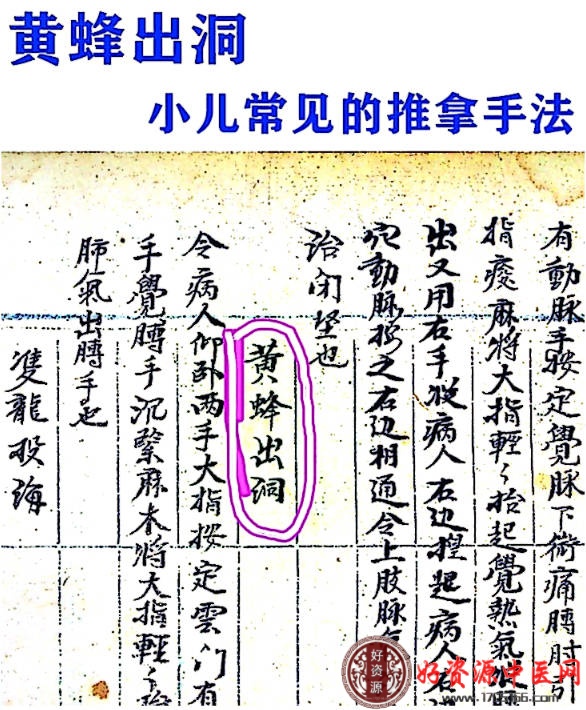 黄蜂出洞
小儿常见的推拿手法
有動脉手按定覺脉下衝痛膊肘引
指痠麻將大指輕々抬起覺熱氣
出又用右手從病人右边提起病人右
穴動脉按之右边相通令上肢脉
治闭坚也
黄蜂出洞
令病人仰卧两手大指按定雲门有
手覺膊手沉緊麻木將大指輕々
肺氣出膊手也
雙龍投海
好资源
好资源中医网